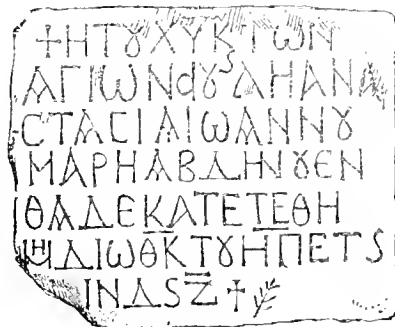 +ΗΤȢΧΥΚϚΤΩΝ
ΑΓΙΩΝdȢΛΗΑΝΑ
CΤΑCΙΑΙΩΑΝΝȢ
ΜΑΡΗΑΒΔΗΝȢΕΝ
ΘΑΔΕΚΑΤΕΤΕΘΗ
ΜΗΔΙΩΘΚΤȢΗΠΕΤS
ΙΝΔSΖ†